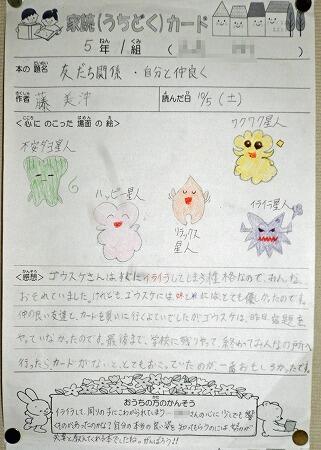 家読(うちどく)カード
5年 1組 (
本の題名 友だち関係・自分と仲良く
作者 藤 美沖 読んだ日 10/5(土)
<心にのこった場面の絵>
ワクワク星人
不安ダヨ星人
ハッピー星人
リラックス星人
イライラ星人
<感想> ゴウスケさんは イライラしてしまう性格なので、みんな
おそれていました。けれども、ゴウスケには にはとても優しかったのです。
仲の良い友達と、カードを買いに行くよていでしたがゴウスケは、昨日宿題を
やっていなかったので、最後まで、学校に残りやって、終わってみんなの所へ
行ったらカードがないと、とてもおこっていたのが、一番おもしろかったです。
おうちの方のかんそう
イライラして、周りの子にこわがられてしまう さんの心に少しでも響く
ものがあったのかな?自分の本当の良い姿を知ってもらうのには努力が
必要と教えてくれる本でしたね。がんばろう!!